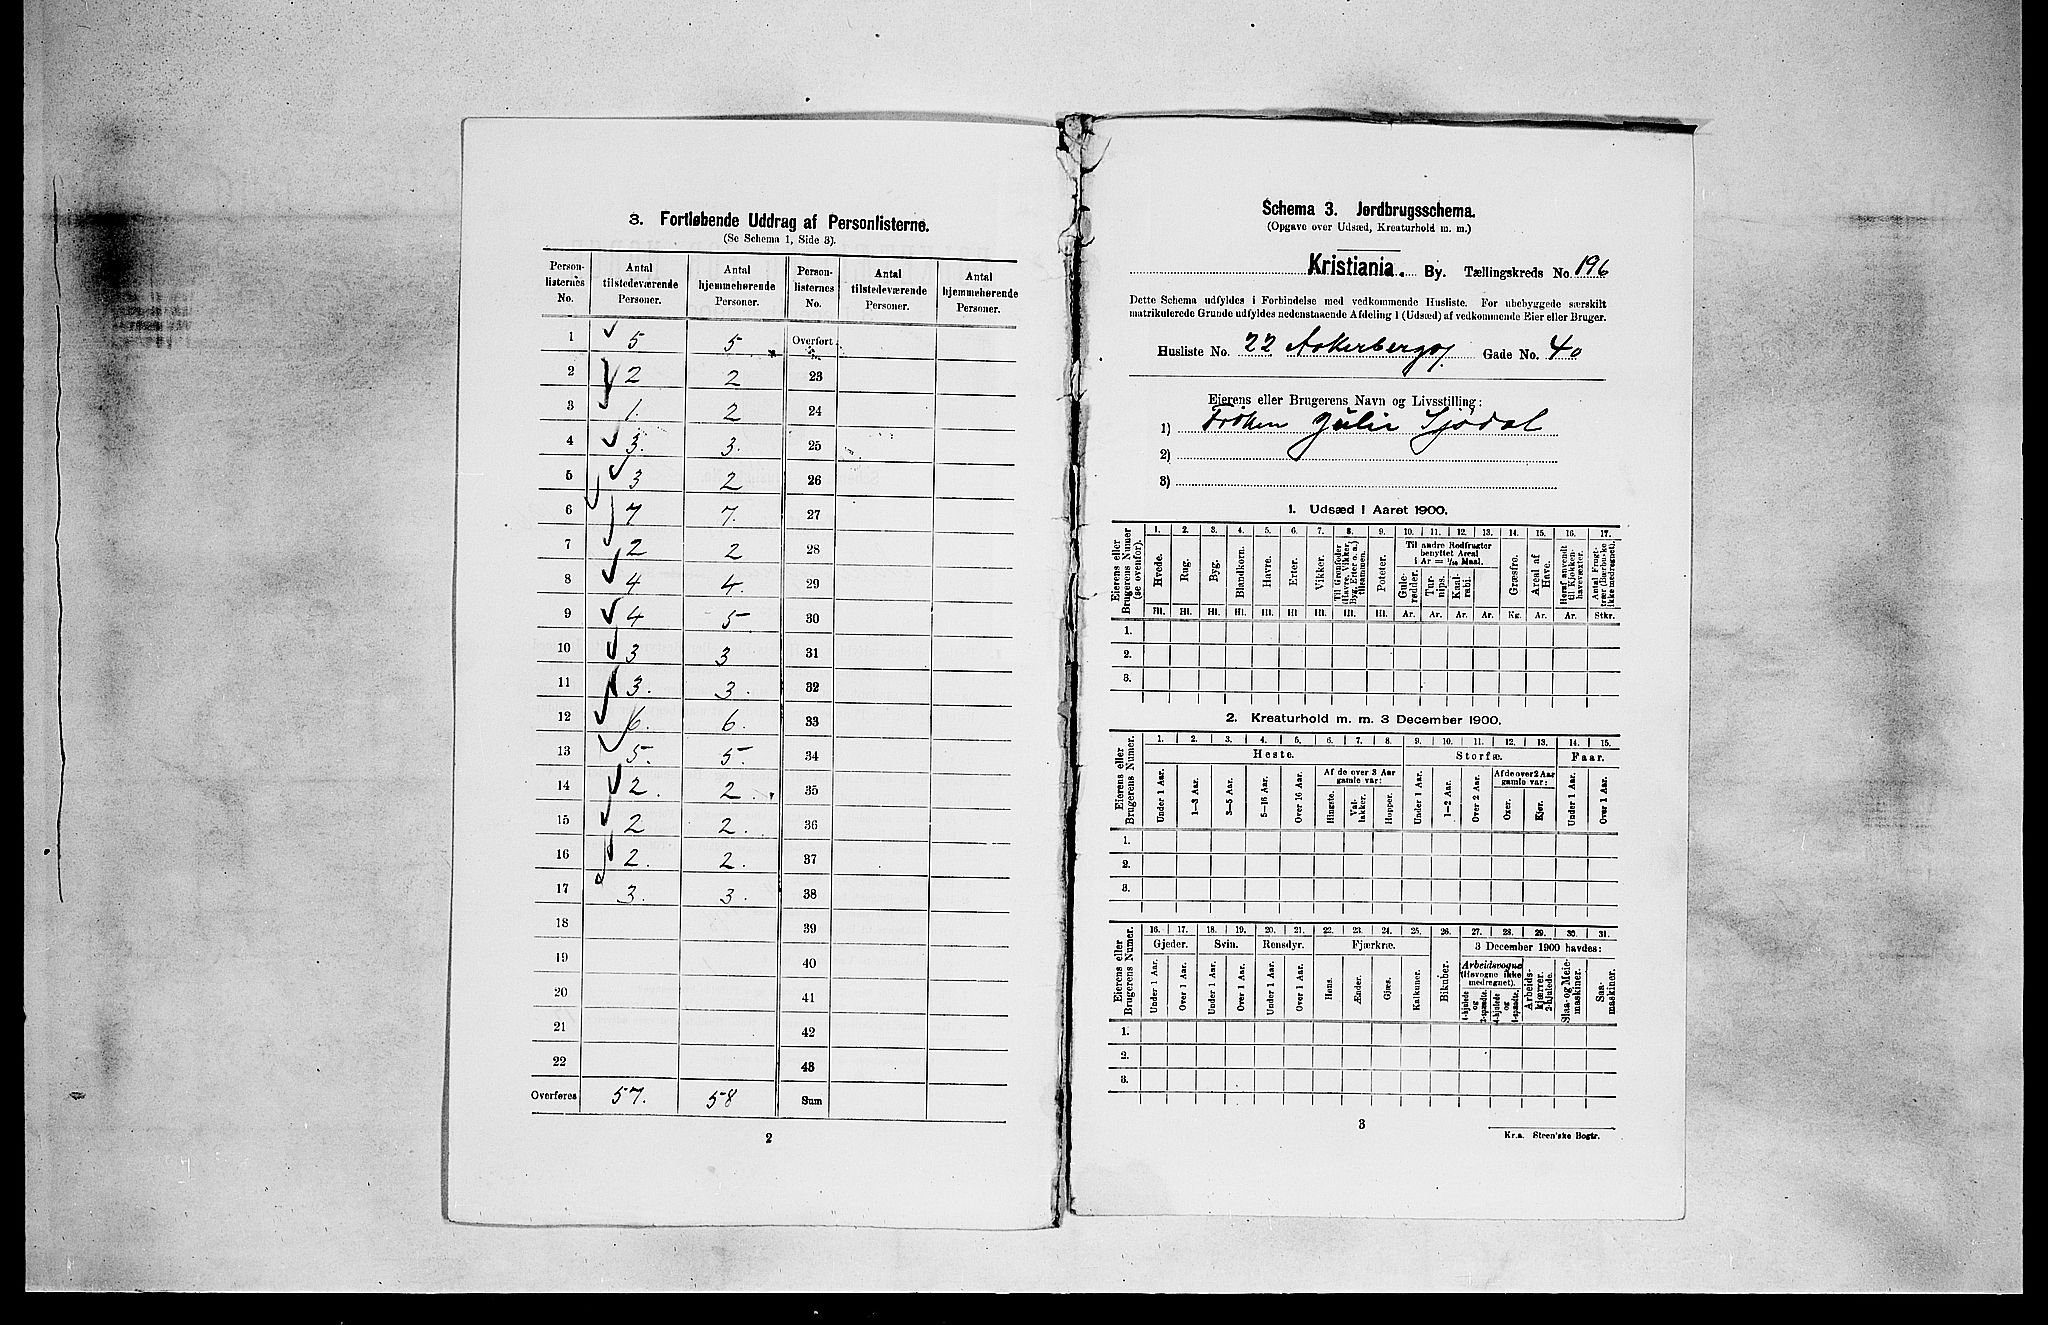 3. Fortløbende Uddrag af Personlisterne.
(Se Schema 1, Side 3).
Person-listernes No. | Antal tilstedeværende Personer. | Antal hjemmehørende Personer. | Person-listernes No. | Antal tilstedeværende Personer. | Antal hjemmehørende Personer.
1 5 5 Overført
2 2 2 23
3 1. 2 24
4 3. 3. 25
5 3 2 26
6 7 7. 27
7 2 2 28
8 4 4. 29
9 4 5 30
10 3 3 31
11 3. 3. 32
12 6. 6. 33
13 5. 5. 34
14 2. 2. 35
15 2 2. 36
16 2. 2. 37
17 3. 3. 38
18 39
19 40
20 41
21 42
22 43
Overføres 57. 58 Sum
2
Schema 3. Jordbrugsschema.
(Opgave over Udsæd, Kreaturhold m. m.)
Kristiania. By. Tællingskreds No. 196
Dette Schema udfyldes i Forbindelse med vedkommende Husliste. For ubebyggede særskilt
matrikulerede Grunde udfyldes nedenstaaende Afdeling 1 (Udsæd) af vedkommende Eier eller Bruger.
Husliste No. 22 Gade No. 40
Eierens eller Brugerens Navn og Livsstilling:
1) Frøken Julie Sjødal
2)
3)
1. Udsæd i Aaret 1900.
Eierens eller Brugerens Numer (se ovenfor).
1. 2. 3. 4. 5. 6. 7. 8. 9. 10. 11. 12. 13. 14. 15. 16. 17.
Til andre Rodfrugter benyttet Areal i Ar = 1/10 Maal.
Hvede. Rug. Byg. Blandkorn. Havre. Erter. Vikker. Til Grønfoder (Havre, Vikker, Byg, Erter o. a.) tilsammen. Poteter. Gule-rødder. Tur-nips. Kaal-rabi. Græsfrø. Areal af Have. Heraf anvendt til Kjøkken-havevæxter. Antal Frugt-trær (Bærbuske ikke medregnet).
Hl. Hl. Hl. Hl. Hl. Hl. Hl. Hl. Hl. Ar. Ar. Ar. Ar. Kg. Ar. Ar. Stkr.
1.
2.
3.
2. Kreaturhold m. m. 3 December 1900.
Eierens eller Brugerens Numer.
1. 2. 3. 4. 5. 6. 7. 8. 9. 10. 11. 12. 13. 14. 15.
Heste. Storfæ. Faar.
Af de over 3 Aar gamle var: Af de over 2 Aar gamle var:
Under 1 Aar. 1—3 Aar. 3—5 Aar. 5—16 Aar. Over 16 Aar. Hingste. Val-lakker. Hopper. Under 1 Aar. 1—2 Aar. Over 2 Aar. Oxer. Kjør. Under 1 Aar. Over 1 Aar.
1.
2.
3.
Eierens eller Brugerens Numer.
16. 17. 18. 19. 20. 21. 22. 23. 24. 25. 26. 27. 28. 29. 30. 31.
Gjeder. Svin. Rensdyr. Fjærkræ. 3 December 1900 havdes:
Arbeidsvogne (Høvogne ikke medregnet).
Under 1 Aar. Over 1 Aar. Under 1 Aar. Over 1 Aar. Under 1 Aar. Over 1 Aar. Høns. Ænder. Gjæs. Kalkuner. Bikuber. Arbeids-kjærrer, 2-hjulede. Slaa- og Meie-maskiner. Saa-maskiner.
1.
2.
3.
3
Kr.a. Steen'ske Bogtr.